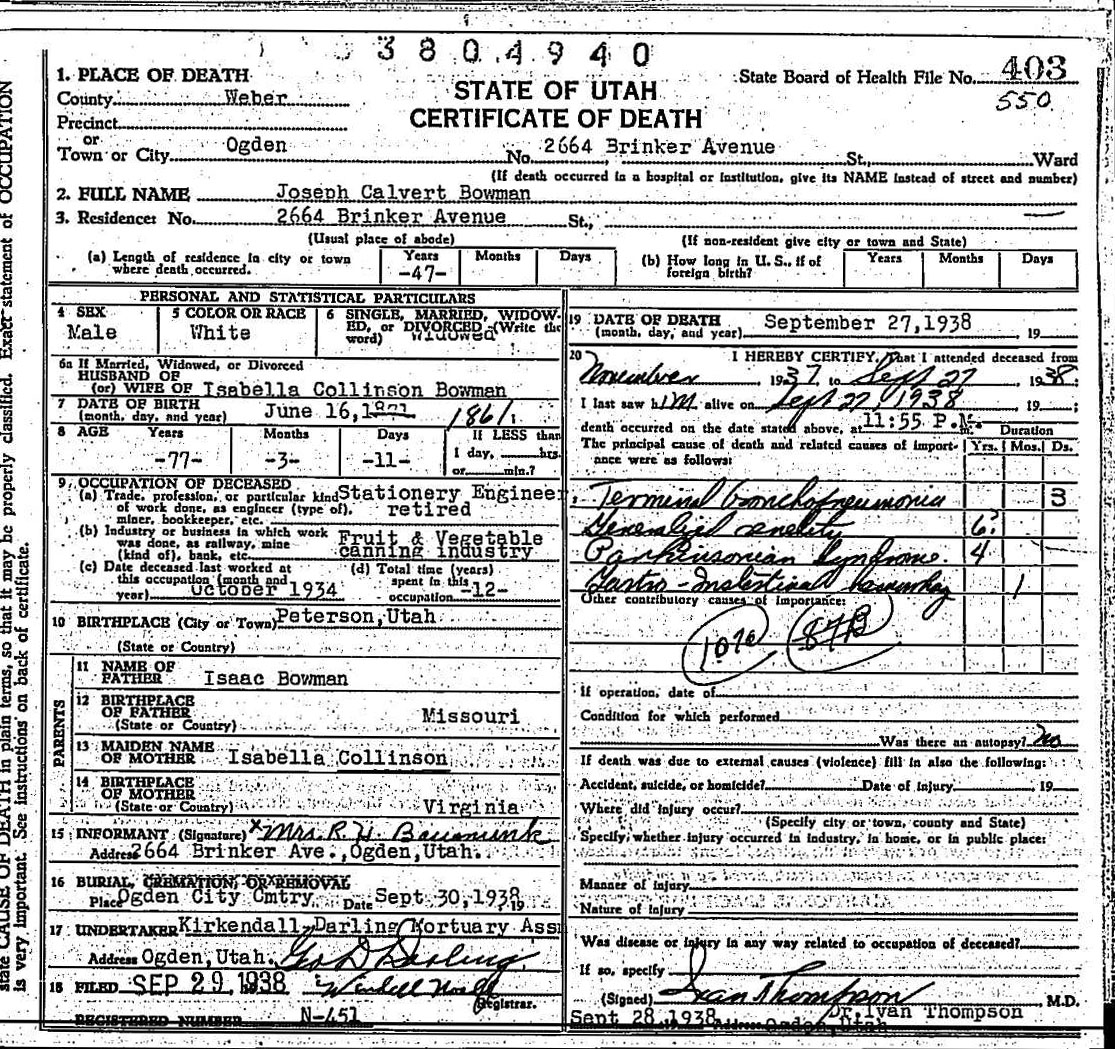 3804940
1. PLACE OF DEATH
County Weber
Precinct
or
Town or City Ogden
STATE OF UTAH
CERTIFICATE OF DEATH
State Board of Health File No. 403
550
No. 2664 Brinker Avenue St., Ward
(If death occurred in a hospital or institution, give its NAME instead of street and number)
2. FULL NAME Joseph Calvert Bowman
3. Residence: No. 2664 Brinker Avenue St.,
(Usual place of abode) (If non-resident give city or town and State)
(a) Length of residence in city or town where death occurred. Years -47- Months Days
(b) How long in U. S., if of foreign birth? Years Months Days
PERSONAL AND STATISTICAL PARTICULARS
4 SEX Male
5 COLOR OR RACE White
6 SINGLE, MARRIED, WIDOW-
ED, or DIVORCED (Write the
word) Widowed
6a If Married, Widowed, or Divorced
HUSBAND OF
(or) WIFE OF Isabella Collinson Bowman
7 DATE OF BIRTH
(month, day, and year) June 16, 1861
8 AGE Years -77- Months -3- Days -11- If LESS than
1 day, hrs.
or min.?
9 OCCUPATION OF DECEASED
(a) Trade, profession, or particular kind
of work done, as engineer (type of),
miner, bookkeeper, etc. Stationery Engineer,
retired
(b) Industry or business in which work
was done, as railway, mine
(kind of), bank, etc. Fruit & Vegetable
canning industry
(c) Date deceased last worked at
this occupation (month and
year) October 1934
(d) Total time (years)
spent in this
occupation -12-
10 BIRTHPLACE (City or Town) Peterson, Utah
(State or Country)
PARENTS
11 NAME OF
FATHER Isaac Bowman
12 BIRTHPLACE
OF FATHER
(State or Country) Missouri
13 MAIDEN NAME
OF MOTHER Isabella Collinson
14 BIRTHPLACE
OF MOTHER
(State or Country) Virginia
15 INFORMANT (Signature) x Mrs. R. H.
Address 2664 Brinker Ave., Ogden, Utah.
16 BURIAL, CREMATION, OR REMOVAL
Place Ogden City Cmtry. Date Sept. 30, 1938, 19
17 UNDERTAKER Kirkendall-Darling Mortuary Assn
Address Ogden, Utah. Geo D Darling
18 FILED SEP 29 1938 Wendell
Registrar.
REGISTERED NUMBER N-451
19 DATE OF DEATH
(month, day, and year) September 27, 1938 19
20 I HEREBY CERTIFY, That I attended deceased from
November, 1937 to Sept 27, 1938;
I last saw him alive on Sept 27, 1938, 19 ;
death occurred on the date stated above, at 11:55 P.M.
The principal cause of death and related causes of import-
ance were as follows:
Duration
Yrs. Mos. Ds.
Terminal bronchopneumonia 3
Generalized senility 6?
Parkinsonian Syndrome. 4
Gastro-Intestinal hemorrhage 1
Other contributory causes of importance:
107a 87B
If operation, date of
Condition for which performed
Was there an autopsy? no
If death was due to external causes (violence) fill in also the following:
Accident, suicide, or homicide? Date of Injury 19
Where did injury occur?
(Specify city or town, county and State)
Specify whether injury occurred in industry, in home, or in public place:
Manner of injury
Nature of injury
Was disease or injury in any way related to occupation of deceased?
If so, specify
(Signed) Ivan Thompson, M.D.
Dr. Ivan Thompson
Sept 28, 1938 Address Ogden, Utah
state CAUSE OF DEATH in plain terms, so that it may be properly classified. Exact statement of OCCUPATION
is very important. See instructions on back of certificate.